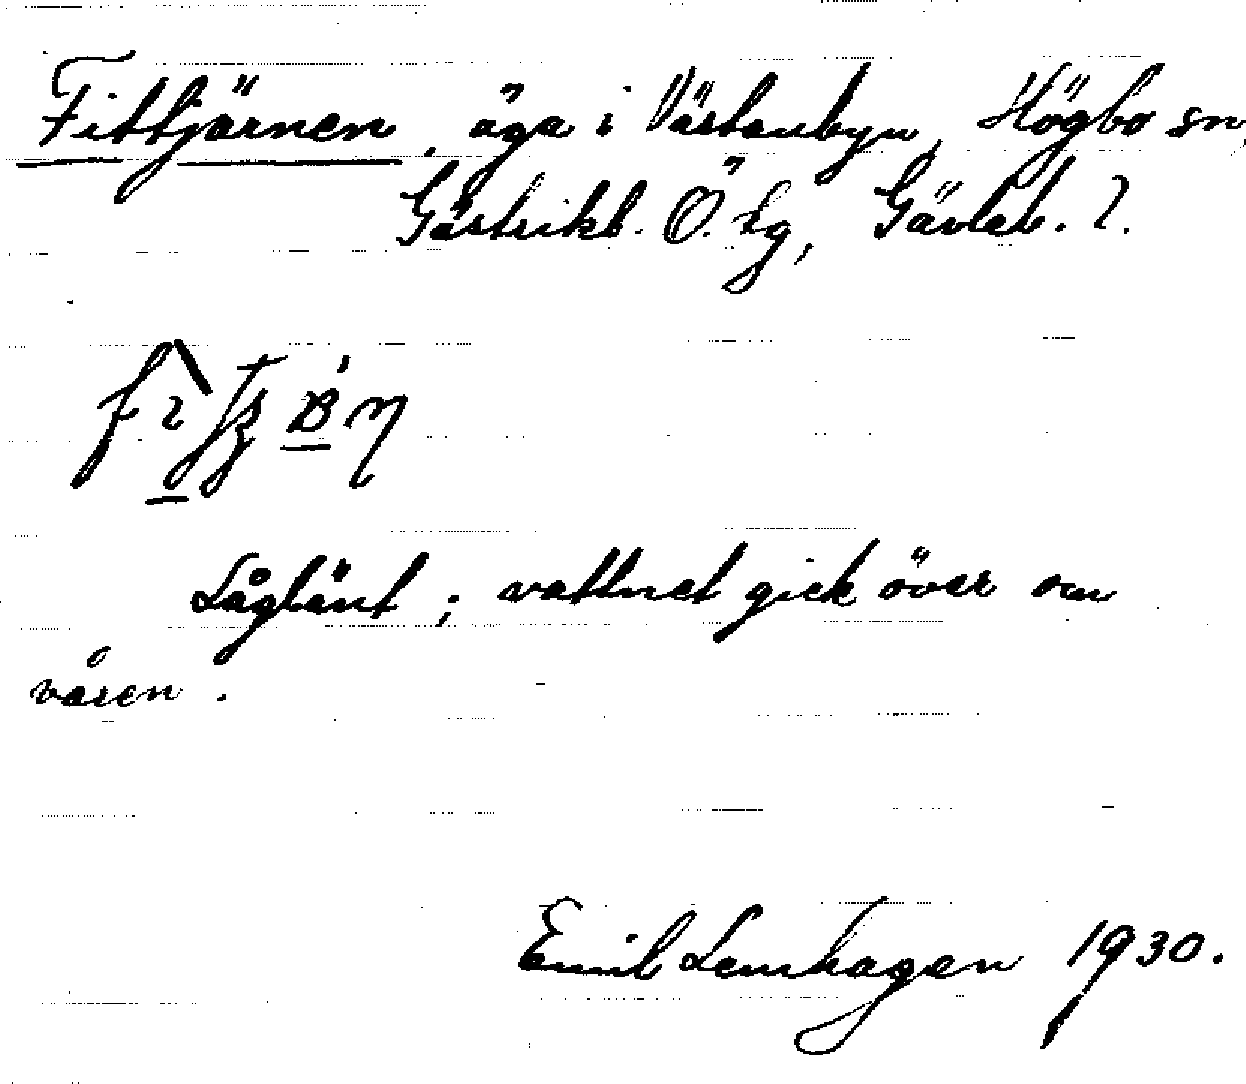 Fittjärnen, äga i Västanbyn, Högbo sn,
Gästrikl. Ö. Lg, Gävleb. l.
Låglänt; vattnet gick över om
våren.
Emil Lemhagen 1930.